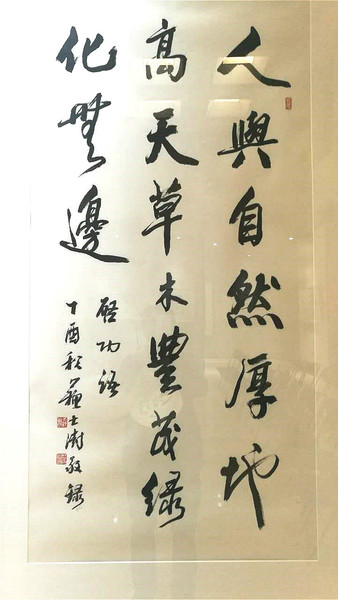 人與自然厚地
高天草木豐茂綠
化無邊
啓功語
丁酉秋蘇士澍敬錄